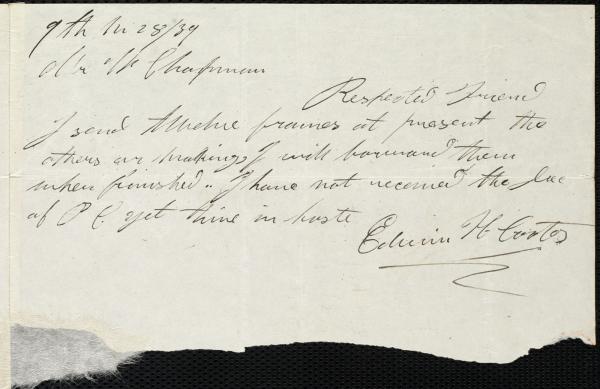 9th Mo 28/39
Wm Chapman
Respected Friend
I send twelve frames at present the
others are making I will forward them
when finished .. I have not received the
of P C. yet thine in haste
Edwin H Coates